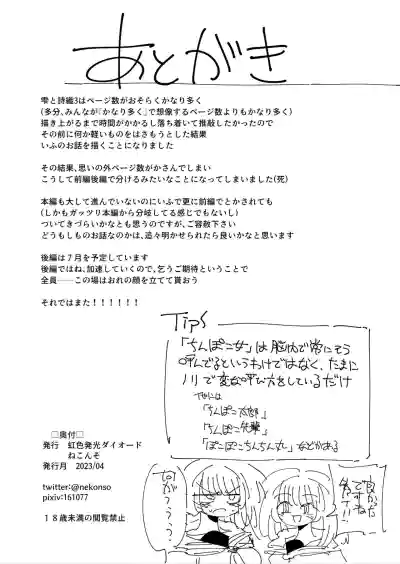 あとがき
雫と詩織3はページ数がおそらくかなり多く
(多分、みんなが「かなり多く」で想像するページ数よりもかなり多く)
描き上がるまで時間がかかるし落ち着いて推敲したかったので
その前に何か軽いものをはさもうとした結果
いふのお話を描くことになりました
その結果、思いの外ページ数がかさんでしまい
こうして前編後編で分けるみたいなことになってしまいました(死)
本編も大して進んでいないのにいふで更に前編とかされても
(しかもガッツリ本編から分岐してる感じでもないし)
ついてきづらいかなとも思うのですが、ご容赦下さい
どうもしものお話なのかは、追々明かせられたら良いかなと思います
後編は７月を予定しています
後編ではね、加速していくので、乞うご期待ということで
全員――この場はおれの顔を立てて貰おう
それではまた！！！！！！
Tips
「ちんぽこ女」は脳内で常にそう
呼んでるというわけではなく、たまに
ノリで変な呼び方をしているだけ
他には
「ちんぽこ太郎」
「ちんぽこ先輩」
「ぽこぽこちんちん丸」などがある
□奥付□
発行　虹色発光ダイオード
ねこんそ
発行月　2023/04
twitter:@nekonso
pixiv:161077
１８歳未満の閲覧禁止
良かった
ですね